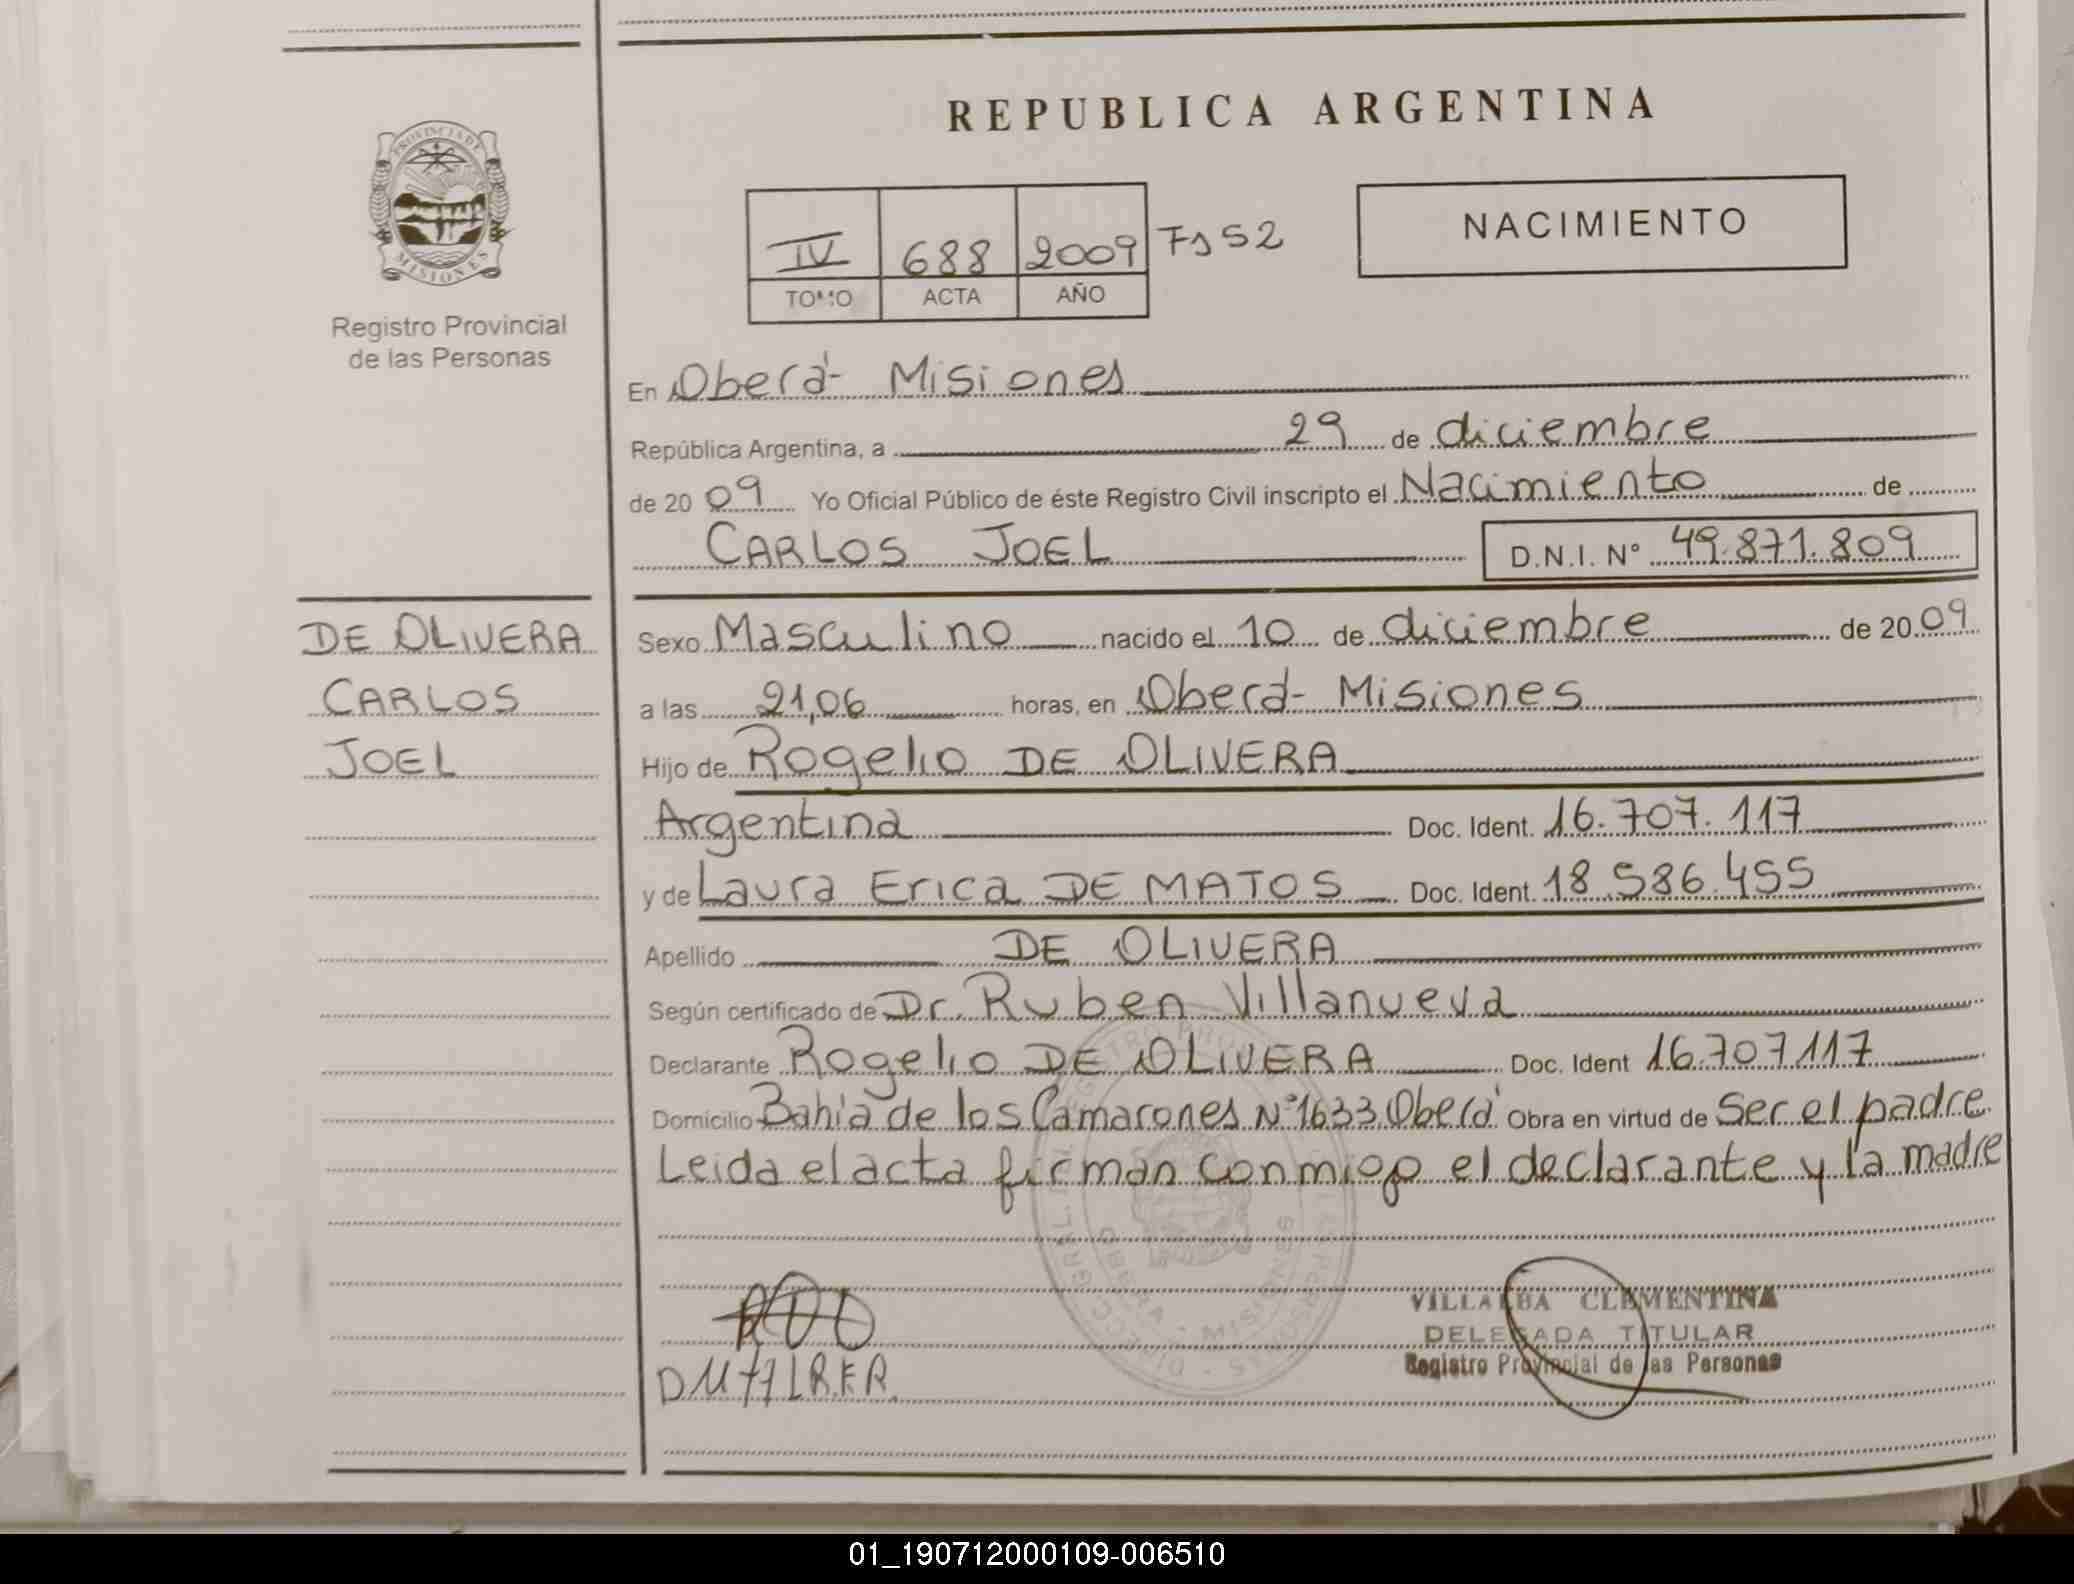 REPUBLICA ARGENTINA
PROVINCIA DE
MISIONES
Registro Provincial
de las Personas
IV 688 2009 Fs 52
TOMO ACTA AÑO
NACIMIENTO
En Oberá - Misiones
República Argentina, a 29 de diciembre
de 2009 Yo Oficial Público de éste Registro Civil inscripto el Nacimiento de
CARLOS JOEL D.N.I. N° 49.871.809
DE OLIVERA
CARLOS
JOEL
Sexo Masculino nacido el 10 de diciembre de 2009
a las 21,06 horas, en Oberá - Misiones
Hijo de Rogelio DE OLIVERA
Argentina Doc. Ident. 16.707.117
y de Laura Erica DE MATOS Doc. Ident. 18.586.455
Apellido DE OLIVERA
Según certificado de Dr. Ruben Villanueva
Declarante Rogelio DE OLIVERA Doc. Ident 16.707.117
Domicilio Bahía de los Camarones N° 1633 Oberá Obra en virtud de Ser el padre
Leida el acta firman conmigo el declarante y la madre
OBERA - MISIONES
VILLALBA CLEMENTINA
DELEGADA TITULAR
Registro Provincial de las Personas
01_190712000109-006510